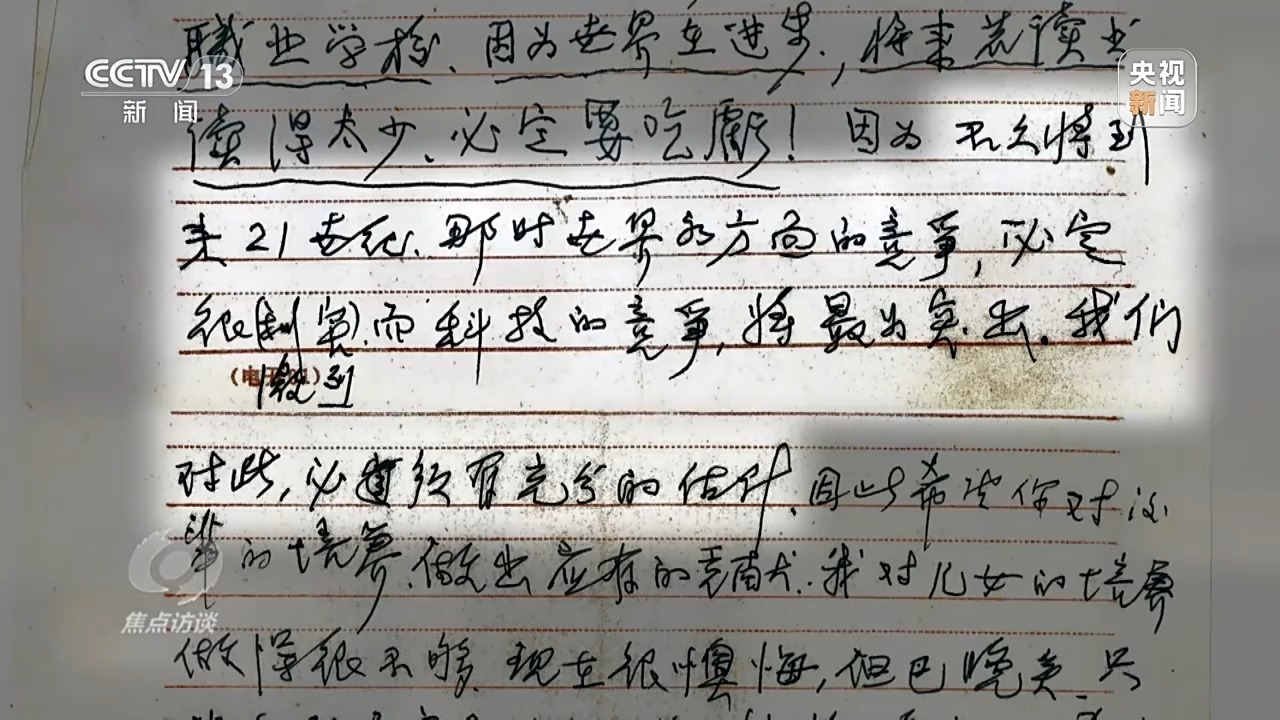 职业学校、因为世界在进步,将来若读书
CCTV 13
新闻
央视
新闻
读得太少、必定要吃虧!因为不久将到
来21世纪、那时世界各方面的竞争,必定
很(剧)而科技的竞争,将最为突出。我们
做到
对此,必须有充分的估计、因此希望你对后
辈的培养、做出应有的贡献.我对儿女的培养
焦点访谈
做得很不够、现在很懊悔,但已晚矣、只